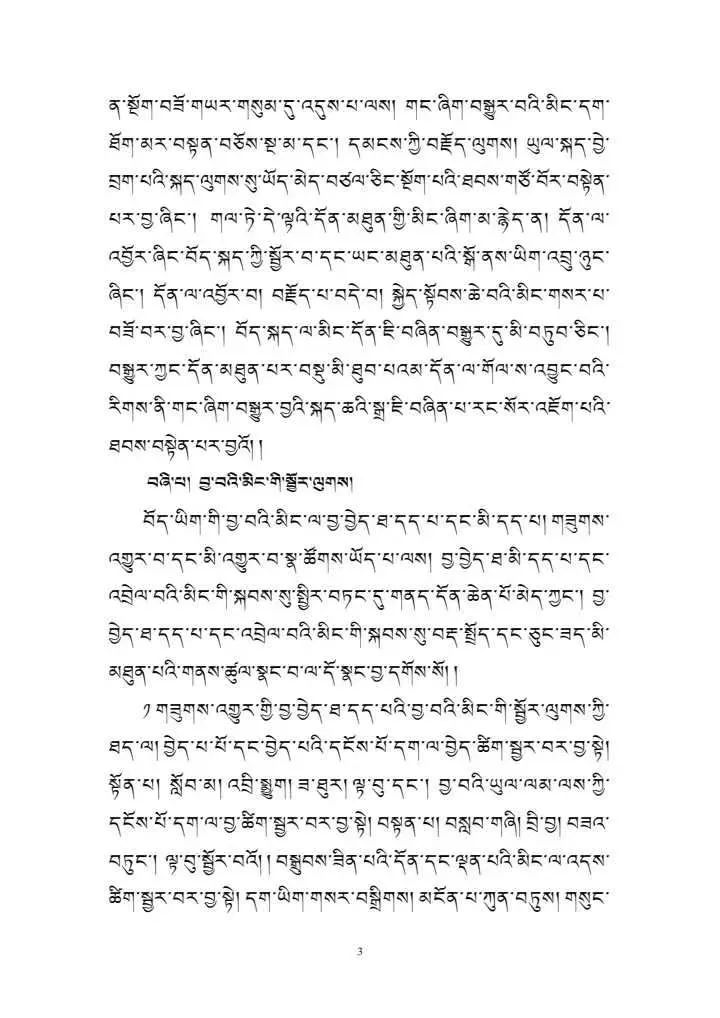 ན་སྔོག་བཟོ་གཡར་གསུམ་དུ་འདུས་པ་ལས། གང་ཞིག་བསྒྱུར་བའི་མིང་དག་
ཐོག་མར་བསྟན་བཅོས་སྔ་མ་དང་། དམངས་ཀྱི་བརྗོད་ལུགས། ཡུལ་སྐད་བྱེ་
བྲག་པའི་སྐད་ལུགས་སུ་ཡོད་མེད་བཙལ་ཅིང་སྔོག་པའི་ཐབས་གཙོ་བོར་བསྟེན་
པར་བྱ་ཞིང་། གལ་ཏེ་དེ་ལྟའི་དོན་མཐུན་གྱི་མིང་ཞིག་མ་རྙེད་ན། དོན་ལ་
འབྱོར་ཞིང་བོད་སྐད་ཀྱི་སྦྱོར་བ་དང་ཡང་མཐུན་པའི་སྒོ་ནས་ཡིག་འབྲུ་ཉུང་
ཞིང་། དོན་ལ་འབྱོར་བ། བརྗོད་པ་བདེ་བ། སྐྱེད་སྟོབས་ཆེ་བའི་མིང་གསར་པ་
བཟོ་བར་བྱ་ཞིང་། བོད་སྐད་ལ་མིང་དོན་ཇི་བཞིན་བསྒྱུར་དུ་མི་བཏུབ་ཅིང་།
བསྒྱུར་ཀྱང་དོན་མཐུན་པར་བསྡུ་མི་ཐུབ་པའམ་དོན་ལ་གོལ་ས་འབྱུང་བའི་
རིགས་ནི་གང་ཞིག་བསྒྱུར་བྱའི་སྐད་ཆའི་སྒྲ་ཇི་བཞིན་པ་རང་སོར་འཇོག་པའི་
ཐབས་བསྟེན་པར་བྱའོ། །
བཞི་པ། བྱ་བའི་མིང་གི་སྦྱོར་ལུགས།
བོད་ཡིག་གི་བྱ་བའི་མིང་ལ་བྱ་བྱེད་ཐ་དད་པ་དང་མི་དད་པ། གཟུགས་
འགྱུར་བ་དང་མི་འགྱུར་བ་སྣ་ཚོགས་ཡོད་པ་ལས། བྱ་བྱེད་ཐ་མི་དད་པ་དང་
འབྲེལ་བའི་མིང་གི་སྐབས་སུ་སྤྱིར་བཏང་དུ་གནད་དོན་ཆེན་པོ་མེད་ཀྱང་། བྱ་
བྱེད་ཐ་དད་པ་དང་འབྲེལ་བའི་མིང་གི་སྐབས་སུ་བརྡ་སྤྲོད་དང་ཅུང་ཟད་མི་
མཐུན་པའི་གནས་ཚུལ་སྣང་བ་ལ་དོ་སྣང་བྱ་དགོས་སོ། །
༡ གཟུགས་འགྱུར་གྱི་བྱ་བྱེད་ཐ་དད་པའི་བྱ་བའི་མིང་གི་སྦྱོར་ལུགས་ཀྱི་
ཐད་ལ། བྱེད་པ་པོ་དང་བྱེད་པའི་དངོས་པོ་དག་ལ་བྱེད་ཚིག་སྦྱར་བར་བྱ་སྟེ།
སྟོན་པ། སློབ་མ། འབྲི་སྨྱུག། ཟ་ཐུར། ལྟ་བུ་དང་། བྱ་བའི་ཡུལ་ལམ་ལས་ཀྱི་
དངོས་པོ་དག་ལ་བྱ་ཚིག་སྦྱར་བར་བྱ་སྟེ། བསྟན་པ། བསླབ་གཞི། བྲི་བྱ། བཟའ་
བཏུང་། ལྟ་བུ་སྦྱོར་བའོ། །བསྒྲུབས་ཟིན་པའི་དོན་དང་ལྡན་པའི་མིང་ལ་འདས་
ཚིག་སྦྱར་བར་བྱ་སྟེ། དག་ཡིག་གསར་བསྒྲིགས། མངོན་པ་ཀུན་བཏུས། གསུང་
3